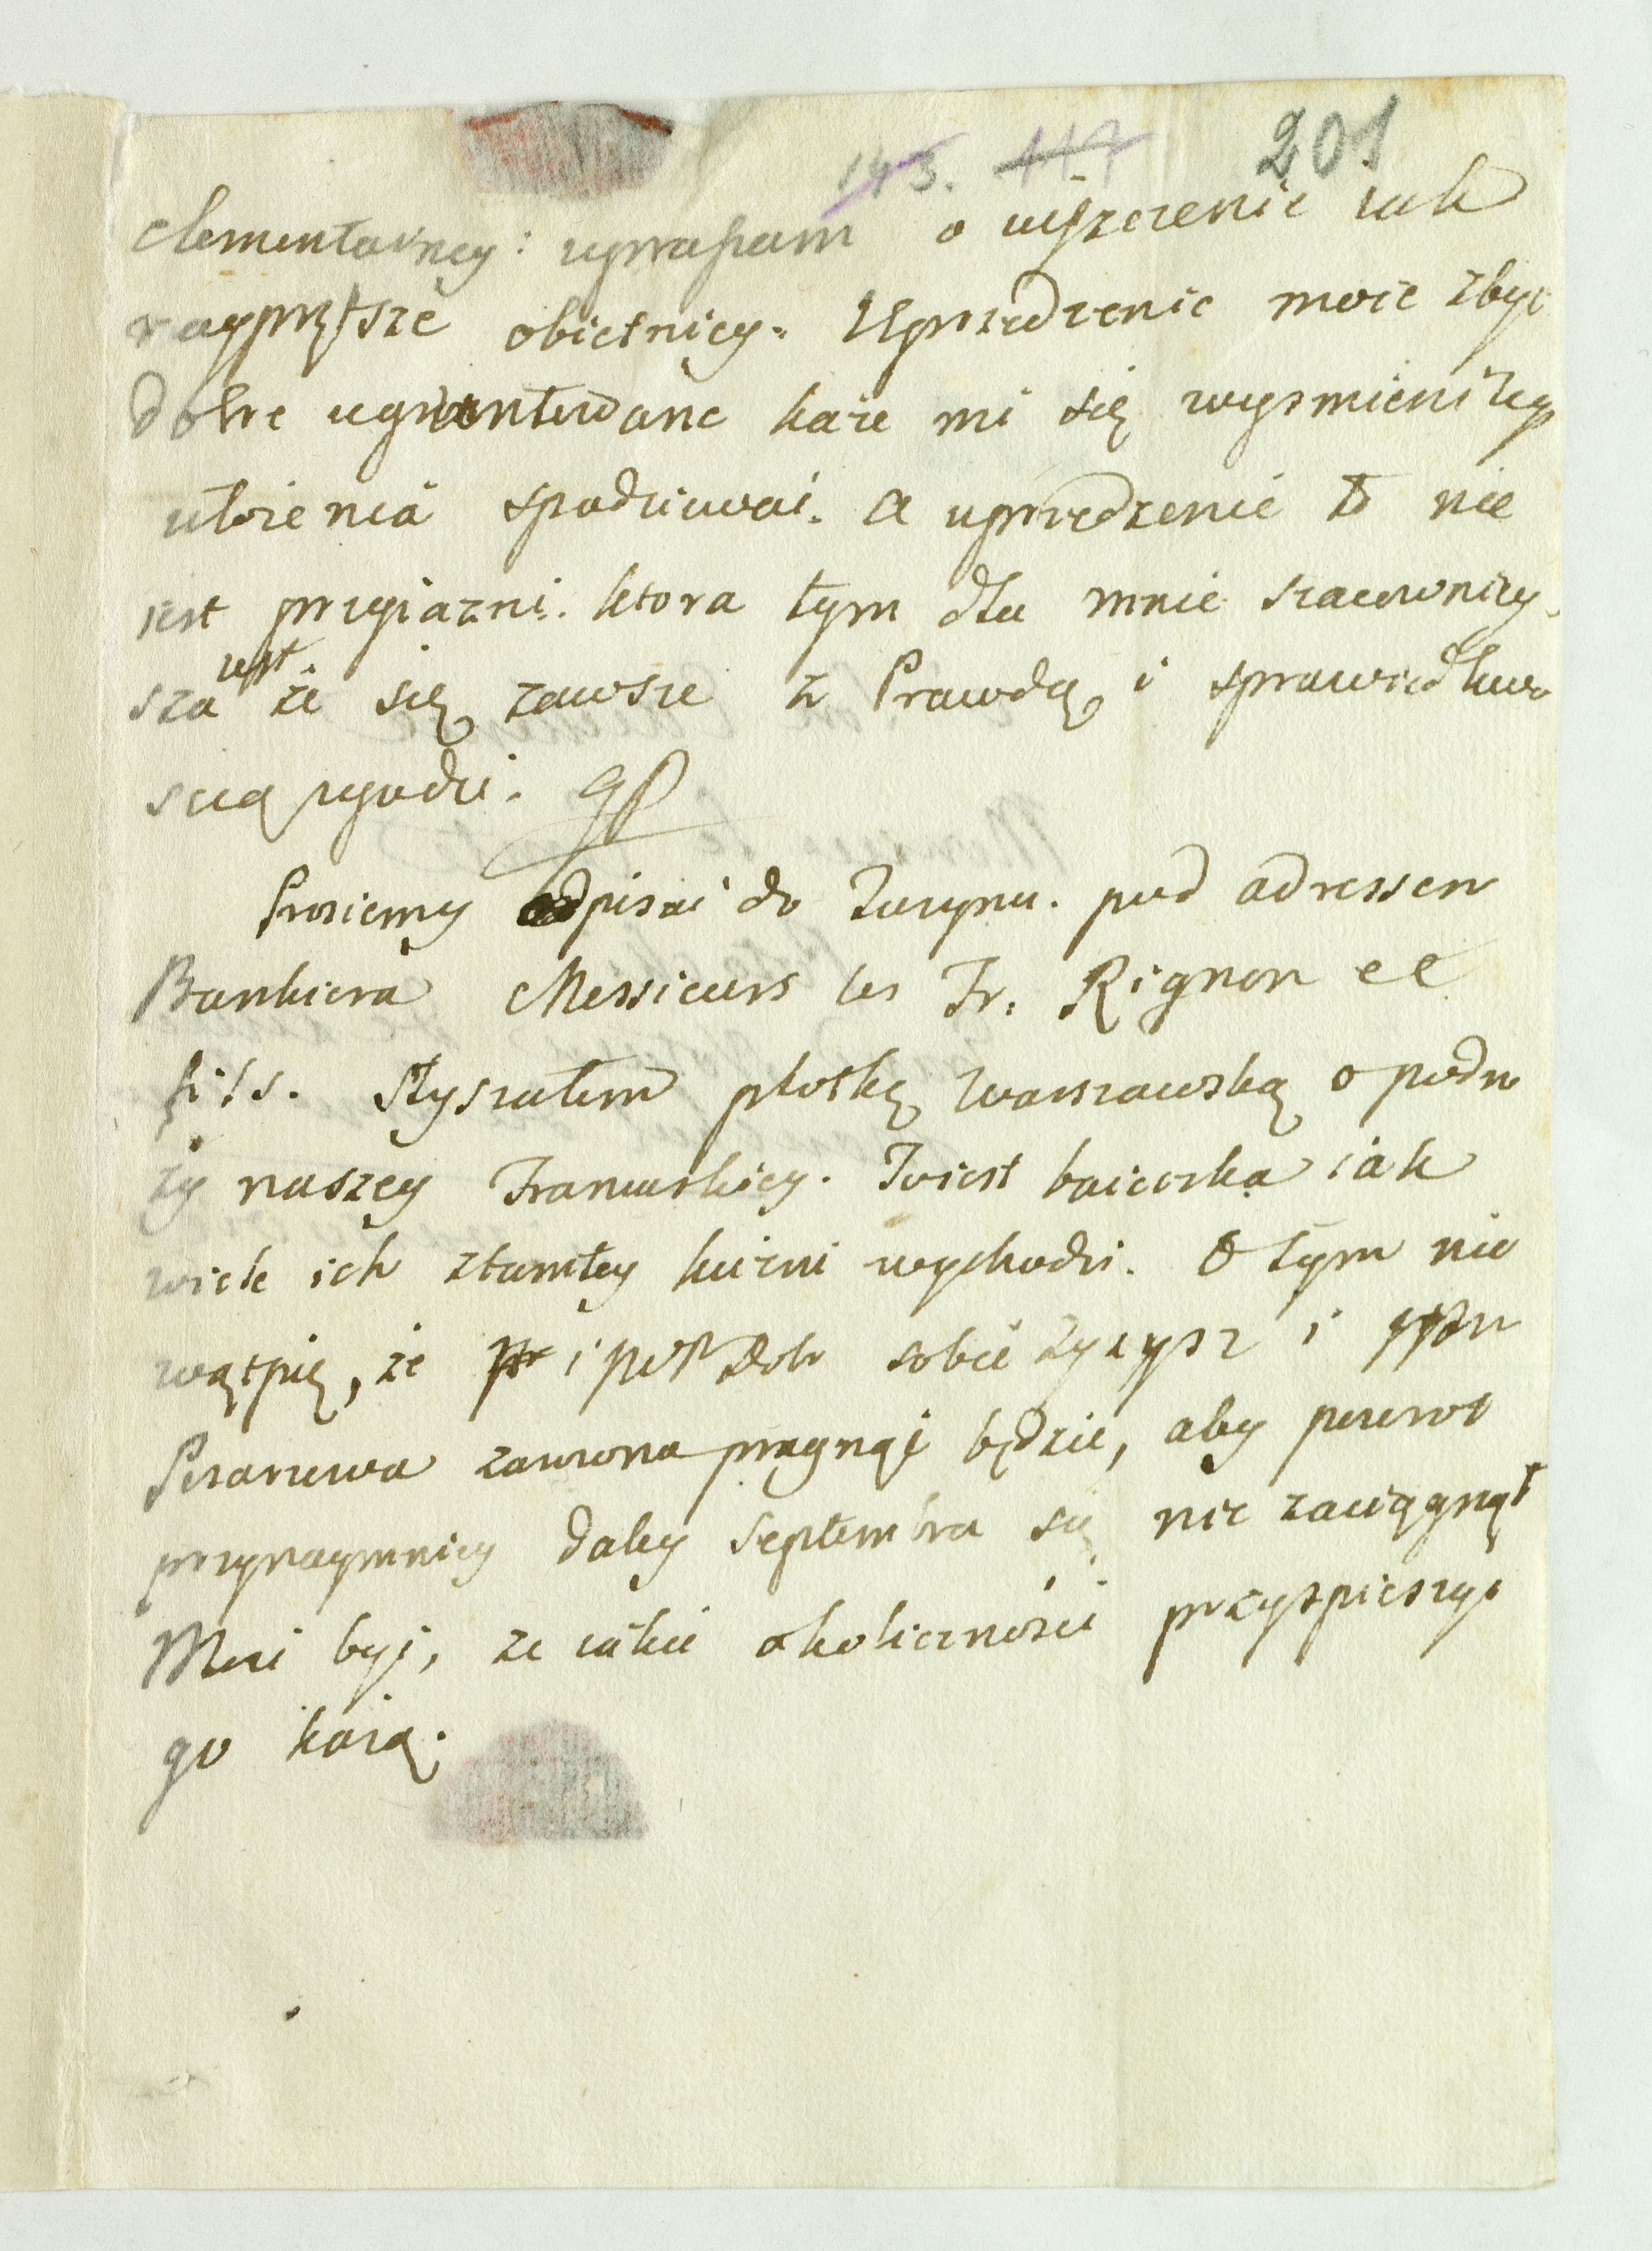 143. 117 201
elementarney: upraszam o uiszczenie iak
nayprętsze obietnicy. Uprzedzenie moie zbyt
dobre ugruntowane każe mi się wysmienitego
ułożenia spodziewać. A uprzedzenie to nie
iest przyiazni. ktora tym dla mnie szacowniey
sza iest. że się zawsze z Prawdą i sprawiedliwo
scią zgodzi.
Prosiemy odpisać do Turynu. pod adressem
Bankiera Messieurs les Fr: Rignon et
fils. Słyszałem plotkę Warszawską o podro
ży naszey Francuskiey. To iest baieczka iak
wiele ich ztamtey kuźni wychodzi. O tym nie
wątpię, że i sobie życzysz i
zawsze pragnąć będzie, aby powrot
przynaymniey daley Septembra się nie zaciągnął
Może być, że iakie okoliczności przyspieszyć
go każą.